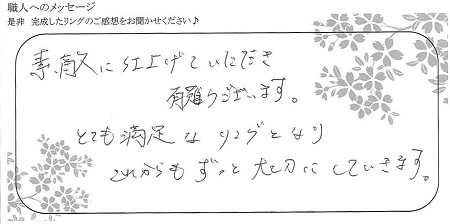 職人へのメッセージ
是非 完成したリングのご感想をお聞かせください♪
素敵に仕上げていただき
有難うございます。
とても満足なリングとなり
これからもずっと大切にしていきます。